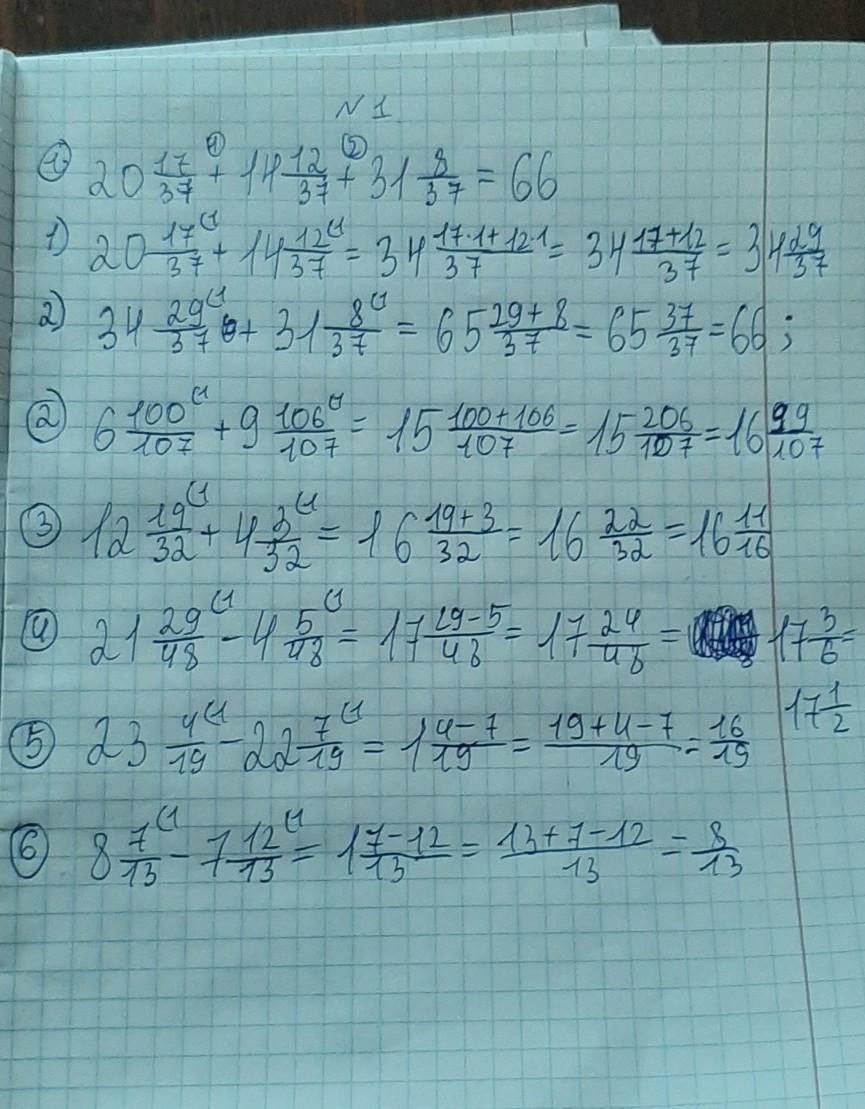 № 1
① 20 17/37 +① 14 12/37 +② 31 8/37 = 66
1) 20 17/37 (1 + 14 12/37 (1 = 34 (17·1+12·1)/37 = 34 (17+12)/37 = 34 29/37
2) 34 29/37 (1 + 31 8/37 (1 = 65 (29+8)/37 = 65 37/37 = 66;
② 6 100/107 (1 + 9 106/107 (1 = 15 (100+106)/107 = 15 206/107 = 16 99/107
③ 12 19/32 (1 + 4 3/32 (1 = 16 (19+3)/32 = 16 22/32 = 16 11/16
④ 21 29/48 (1 - 4 5/48 (1 = 17 (29-5)/48 = 17 24/48 = 17 3/6 =
17 1/2
⑤ 23 4/19 (1 - 22 7/19 (1 = 1 (4-7)/19 = (19+4-7)/19 = 16/19
⑥ 8 7/13 (1 - 7 12/13 (1 = 1 (7-12)/13 = (13+7-12)/13 = 8/13